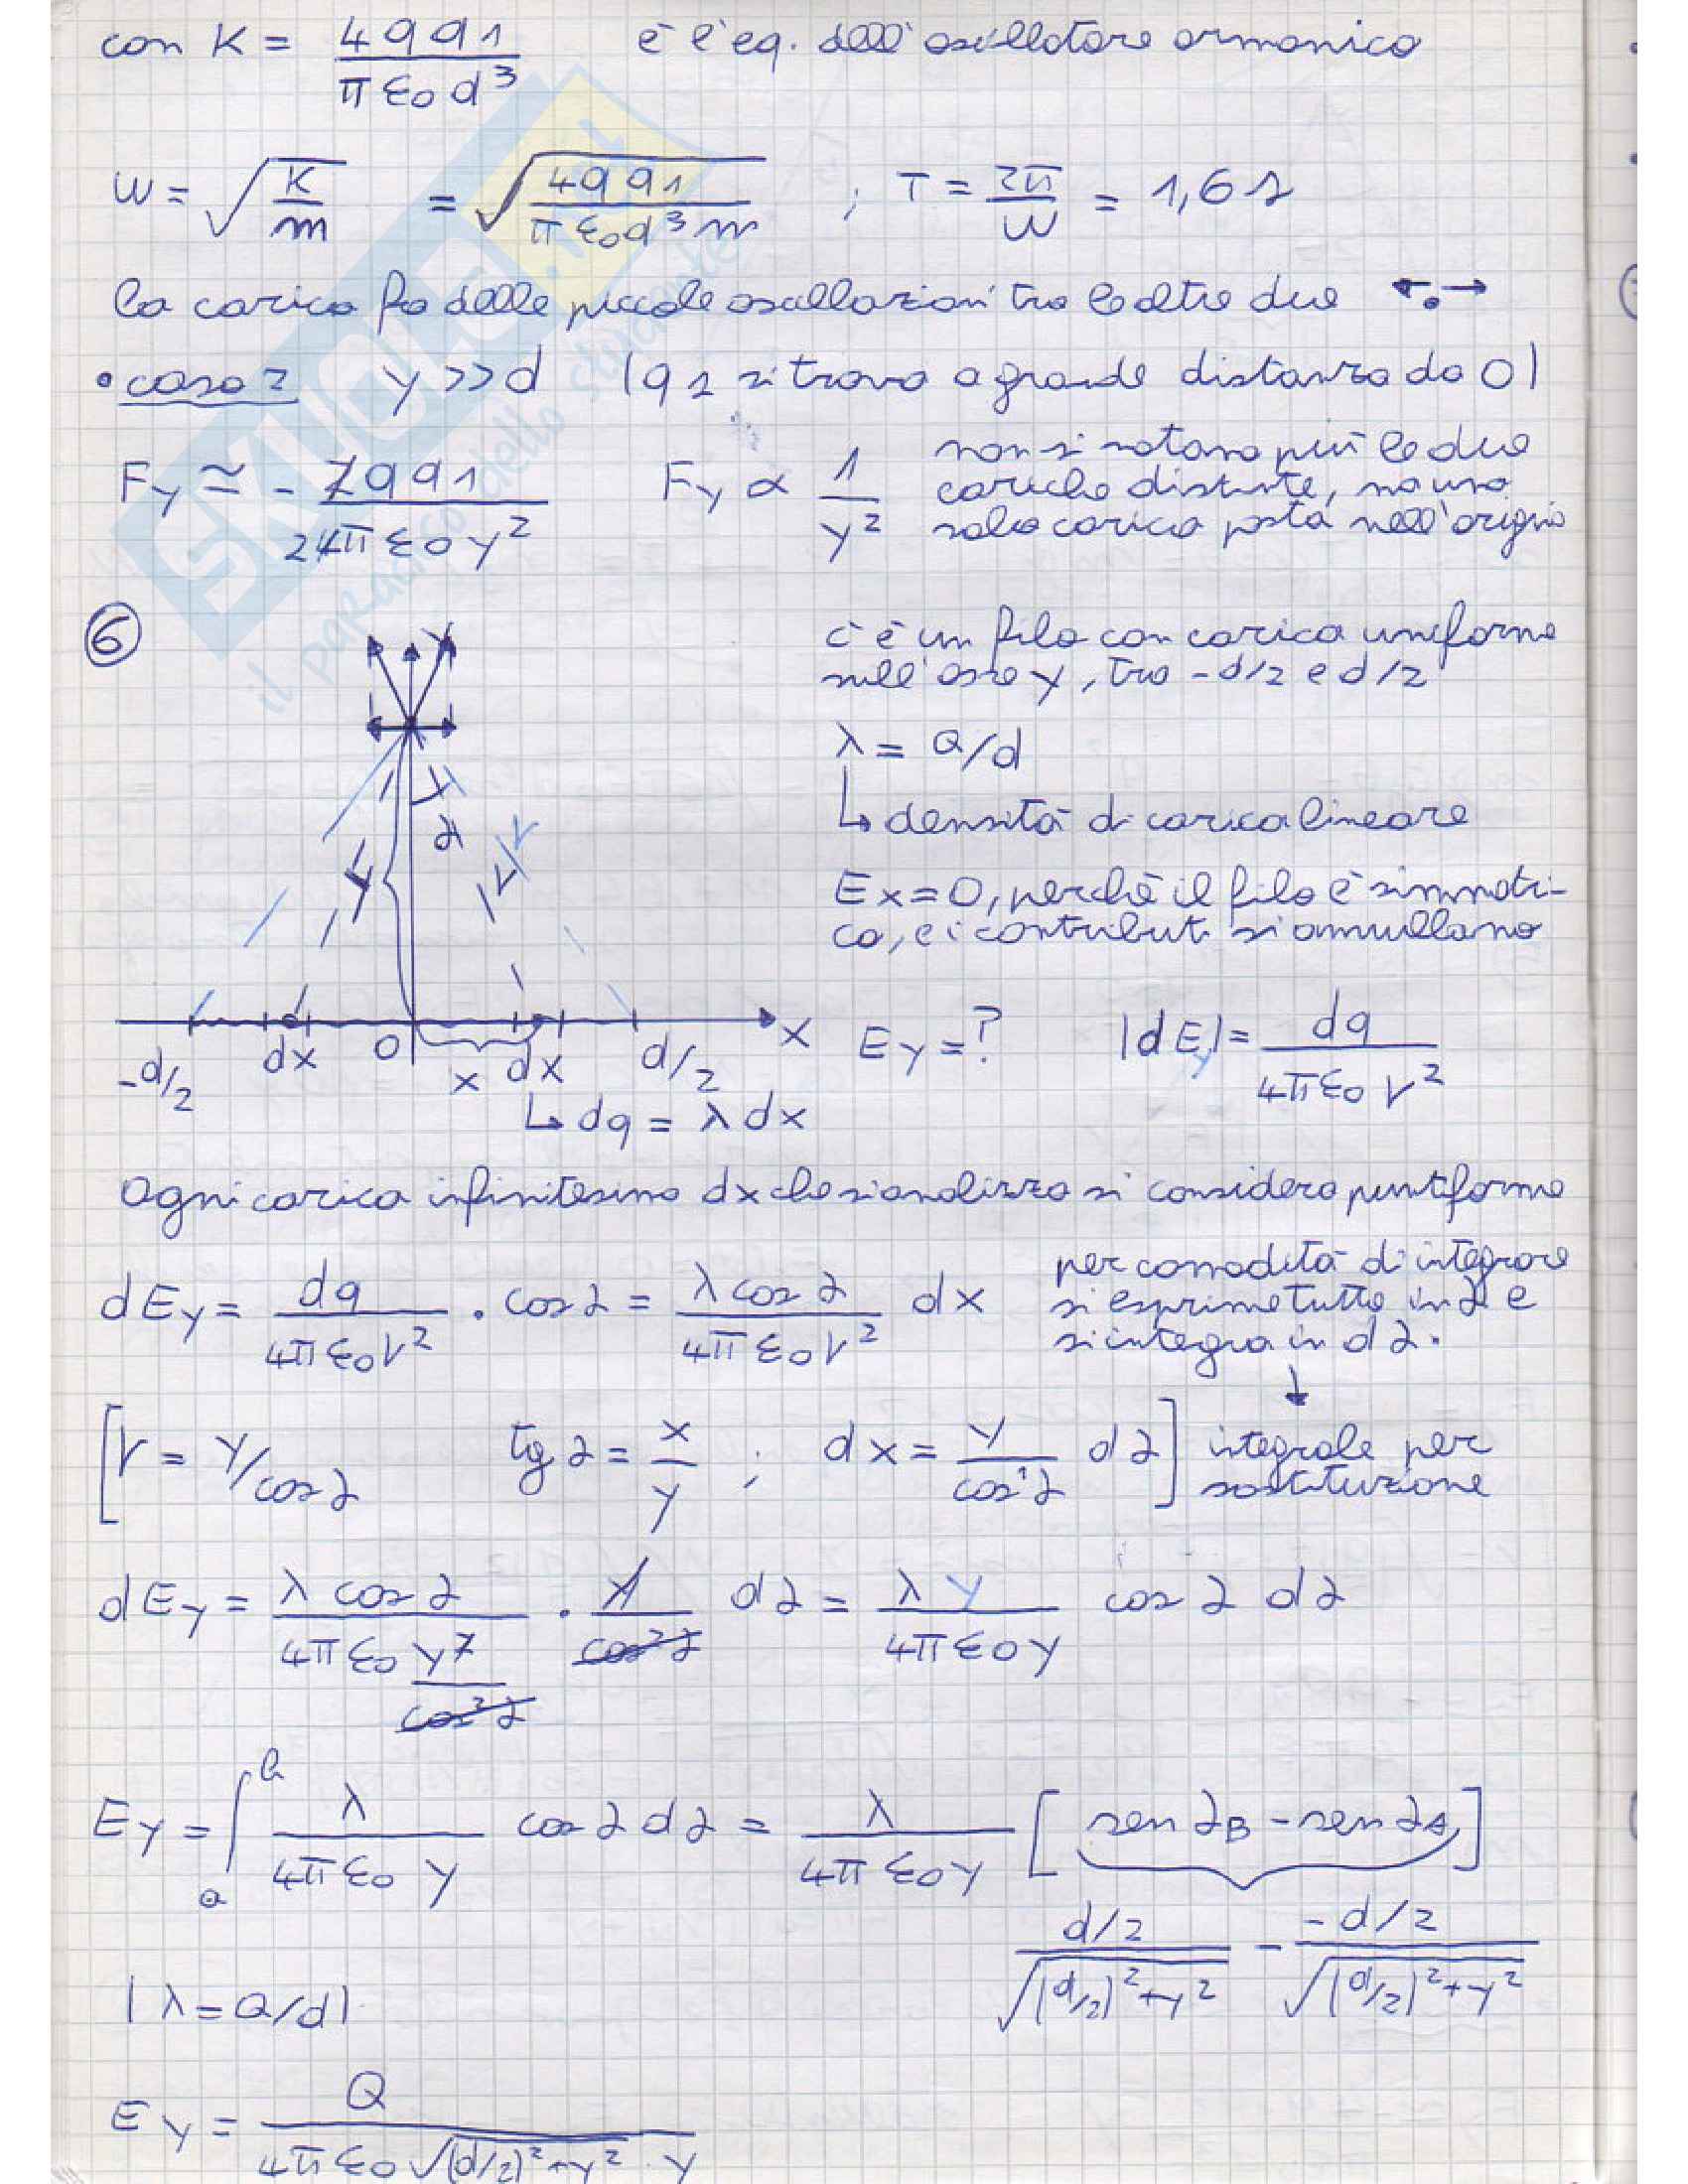 con K = 4qq1 / πε0d³   è l'eq. dell'oscillatore armonico
W = √(K/m) = √(4qq1 / πε0d³m) ; T = 2π/W = 1,6 s
la carica fa delle piccole oscillazioni tra le altre due
• caso 2   y >> d   (q1 si trova a grande distanza da O)
Fy ≃ - 2qq1 / 24πε0y²   Fy ∝ 1/y²
non si notano più le due
cariche distinte, ma una
sola carica posta nell'origine
6
c'è un filo con carica uniforme
sull'asse y, tra -d/2 e d/2
λ = Q/d
↳ densità di carica lineare
Ex = 0, perchè il filo è simmetri-
co, e i contributi si annullano
y α r
-d/2 dx O x dx d/2 x
↳ dq = λ dx
Ey = ?   |dEy| = dq / 4πε0 r²
Ogni carica infinitesima dx che si analizza si considera puntiforme
dEy = dq / 4πε0r² · cos α = λ cos α / 4πε0r² dx
per comodità di integrare
si esprime tutto in α e
si integra in dα.
↓
[r = y/cos α   tg α = x/y ; dx = y / cos²α dα] integrale per
sostituzione
dEy = λ cos α / 4πε0 y²/cos²α · y / cos²α dα = λ y / 4πε0y cos α dα
Ey = ∫ a b λ / 4πε0 y cos α dα = λ / 4πε0y [sen αB - sen αA]
d/2 / √((d/2)²+y²) - -d/2 / √((d/2)²+y²)
(λ = Q/d)
Ey = Q / 4πε0 √((d/2)²+y²) · y
SKUOLA.it
il paradiso dello studente